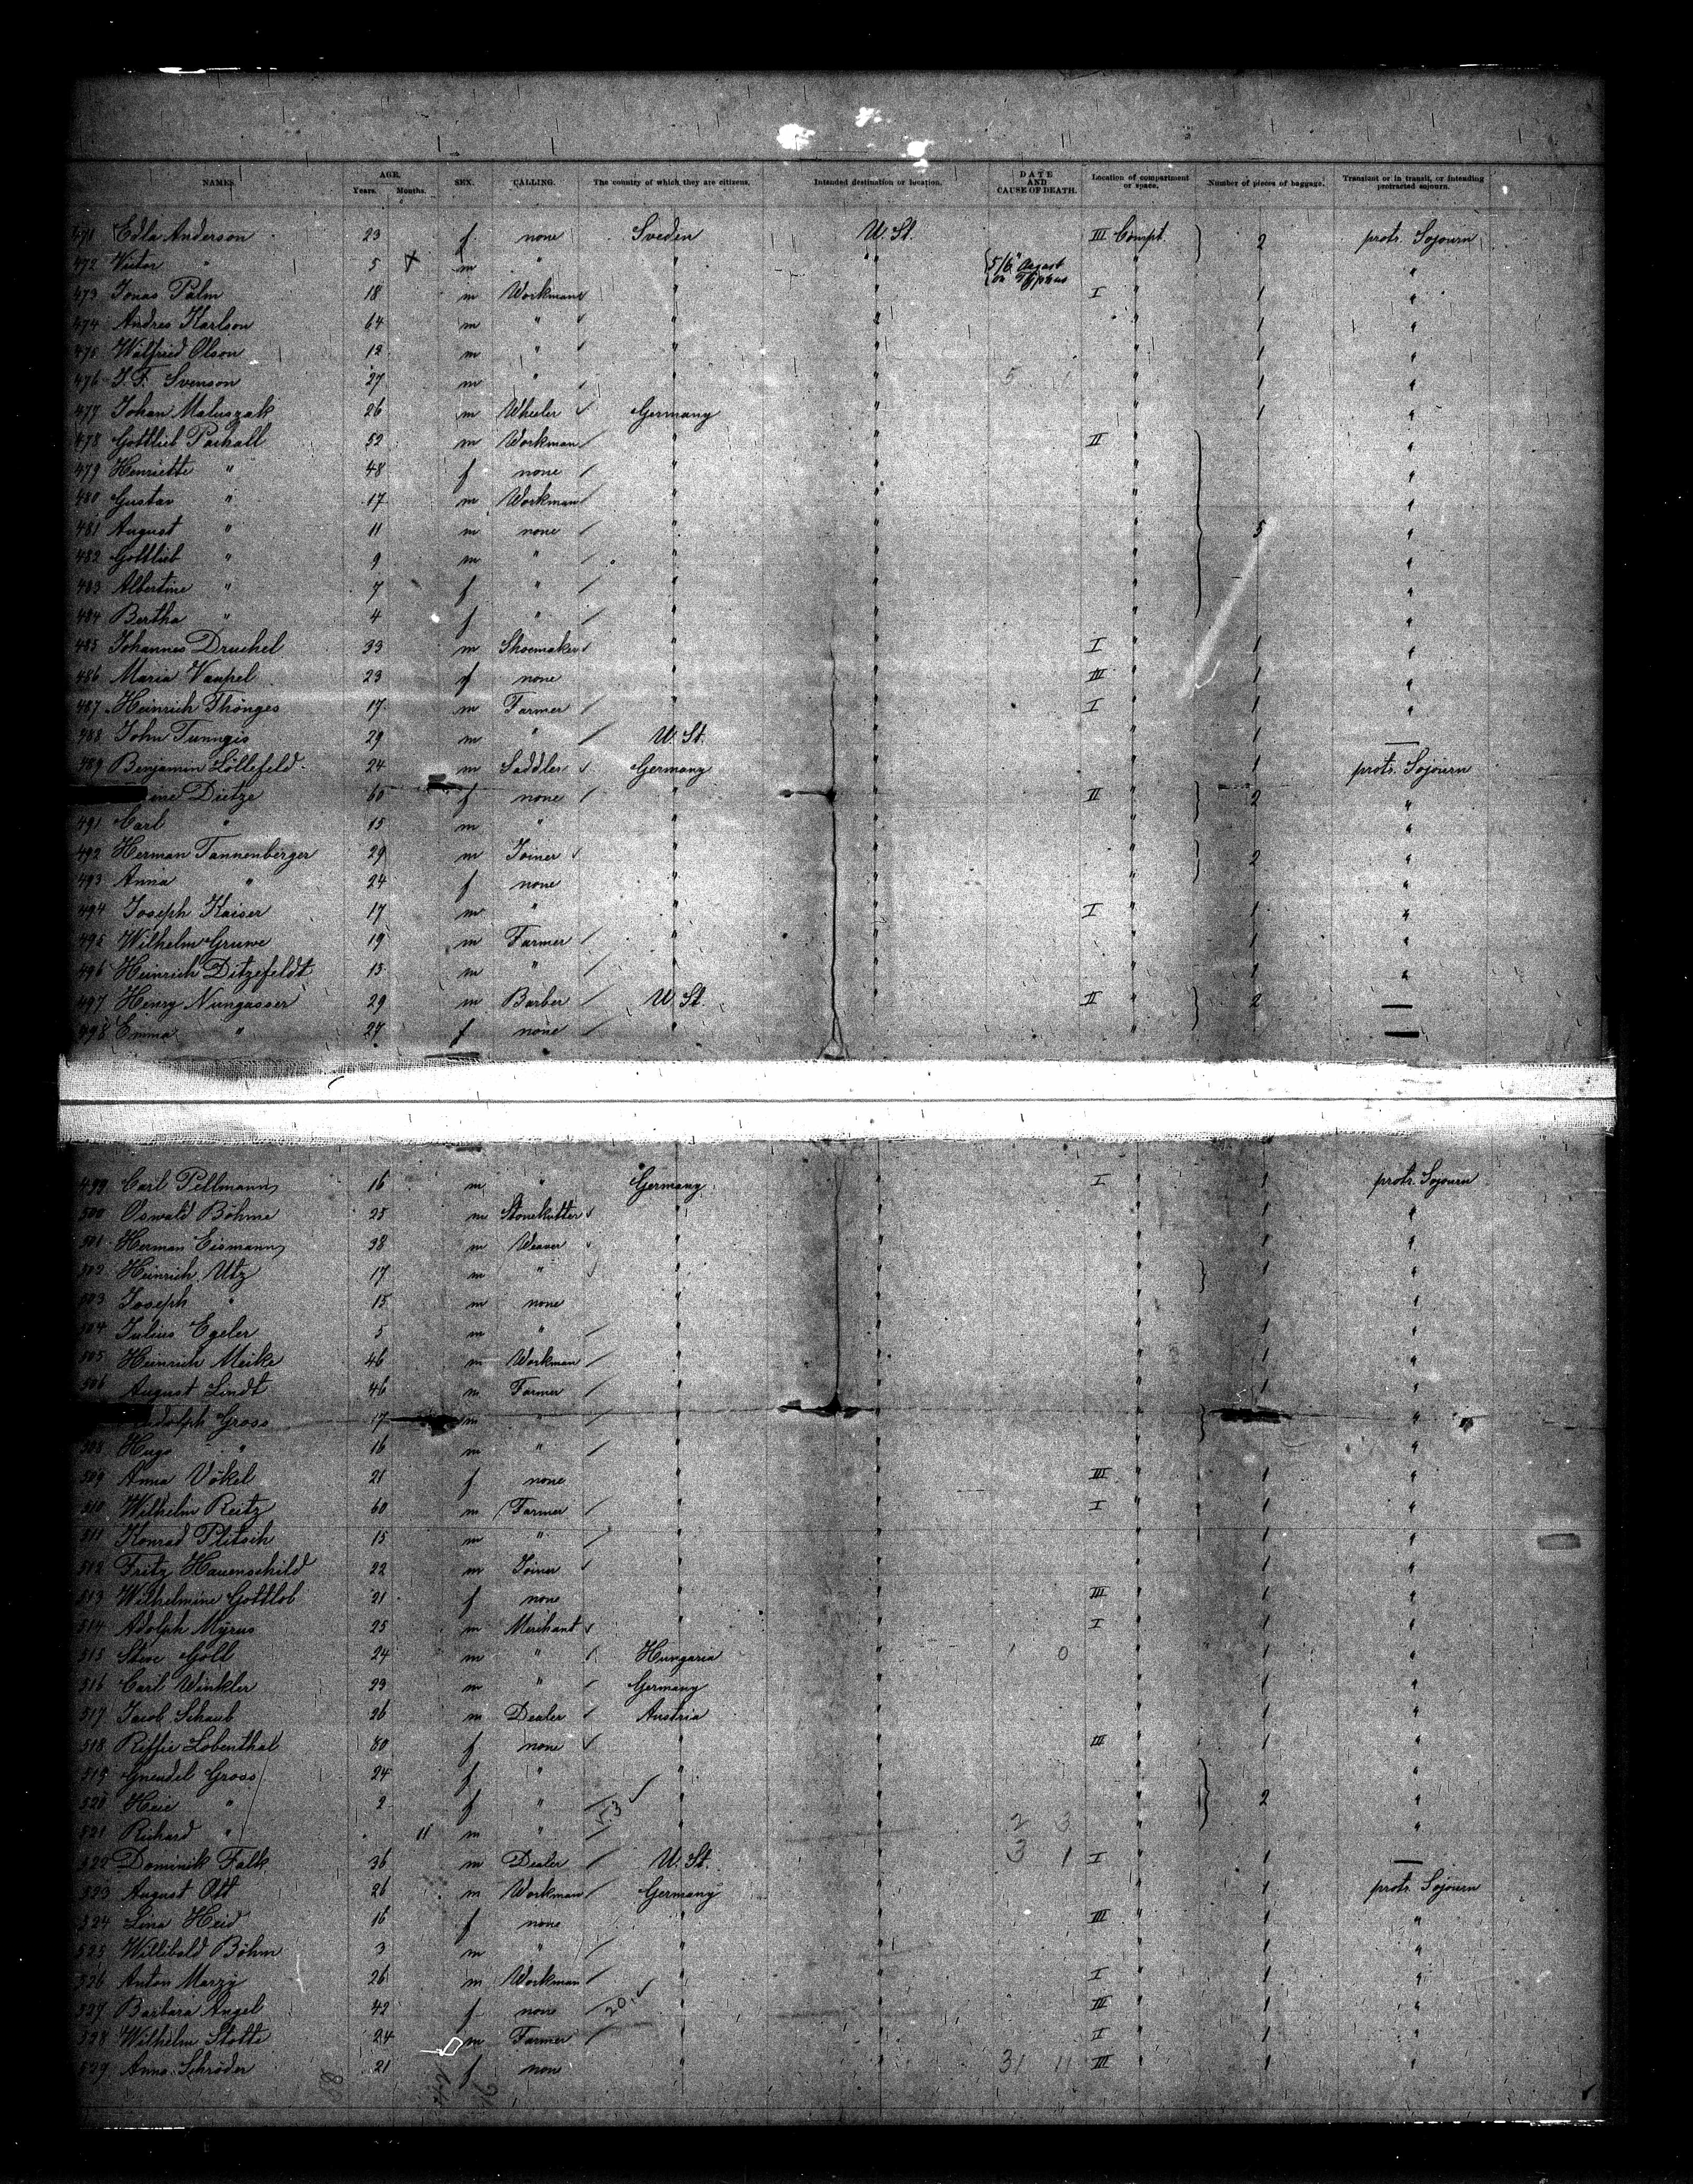 NAMES. AGE. Years. Months. SEX. CALLING. The country of which they are citizens. Intended destination or location. DATE AND CAUSE OF DEATH. Location of compartment or space. Number of pieces of baggage. Transient or in transit, or intending protracted sojourn.
471 Edla Anderson 23 f none Sveden U. St. III Compt. 2 protr. Sojourn
472 Victor " 5 m " " " 5/6 August on Typhus " "
473 Jonas Palm 18 m Workman " " I " 1 "
474 Andres Karlson 64 m " " " " 1 "
475 Walfried Olson 12 m " " " " 1 "
476 J. F. Svenson 27 m " " " " 1 "
477 Johan Maluszak 26 m Wheeler Germany " " 1 "
478 Gottlieb Pachall 52 m Workman " " II " "
479 Henriette " 48 f none " " " "
480 Gustav " 17 m Workman " " " "
481 August " 11 m none " " " 5 "
482 Gottlieb " 9 m " " " " "
483 Albertine " 7 f " " " " "
484 Bertha " 4 f " " " " "
485 Johannes Druchel 33 m Shoemaker " " I " 1 "
486 Maria Vaupel 23 f none " " III " 1 "
487 Heinrich Thönges 17 m Farmer " " I " 1 "
488 John Tunngis 29 m " U. St. " " 1 —
489 Benjamin Löllefeld 24 m Saddler Germany " " 1 protr. Sojourn
Dietze 60 f none " " II " 2 "
491 Carl " 15 m " " " " "
492 Herman Tannenberger 29 m Joiner " " " 2 "
493 Anna " 24 f none " " " "
494 Joseph Kaiser 17 m " " " I " 1 "
495 Wilhelm Gruwe 19 m Farmer " " " 1 "
496 Heinrich Ditzefeldt 15 m " " " " 1 "
497 Henry Nungasser 29 m Barber U. St. " II " 2 —
498 Emma " 27 f none " " " —
499 Carl Pellmann 16 m " Germany " I " 1 protr. Sojourn
500 Oswald Böhme 25 m Stonekutter " " " 1 "
501 Herman Eismann 38 m Weaver " " " 1 "
502 Heinrich Utz 17 m " " " " 1 "
503 Joseph " 15 m none " " " "
504 Julius Egeler 5 m " " " " 1 "
505 Heinrich Meike 46 m Workman " " " 1 "
506 August Lindt 46 m Farmer " " " 1 "
Gross 17 m " " " " "
508 Hugo " 16 m " " " " "
509 Anna Vökel 21 f none " " III " 1 "
510 Wilhelm Reitz 60 m Farmer " " I " 1 "
511 Konrad Plitsch 15 m " " " " 1 "
512 Fritz Hauenschild 22 m Joiner " " " 1 "
513 Wilhelmine Gottlob 21 f none " " III " 1 "
514 Adolph Myrus 25 m Merchant " " I " 1 "
515 Steve Göll 24 m " Hungaria " 1 0 " 1 "
516 Carl Winkler 29 m " Germany " " 1 "
517 Jacob Schaub 26 m Dealer Austria " " 1 "
518 Reffie Lobenthal 80 f none " " III " 1 "
519 Gnendel Gross 24 f " " " " "
520 Heie " 2 f " " " 2 "
521 Richard " 11 m " 153 " 2 3 " "
522 Dominik Falk 36 m Dealer U. St. " 3 1 I " 1 —
523 August Ott 26 m Workman Germany " " 1 protr. Sojourn
524 Lina Heid 16 f none " " III " 1 "
525 Willibald Böhm 3 m " " " " 1 "
526 Anton Marzy 26 m Workman " " I " 1 "
527 Barbara Angel 42 f none 20. " " III " 1 "
528 Wilhelm Stotte 24 m Farmer " " I " 1 "
529 Anna Schröder 21 f none " " 31 11 III " 1 "